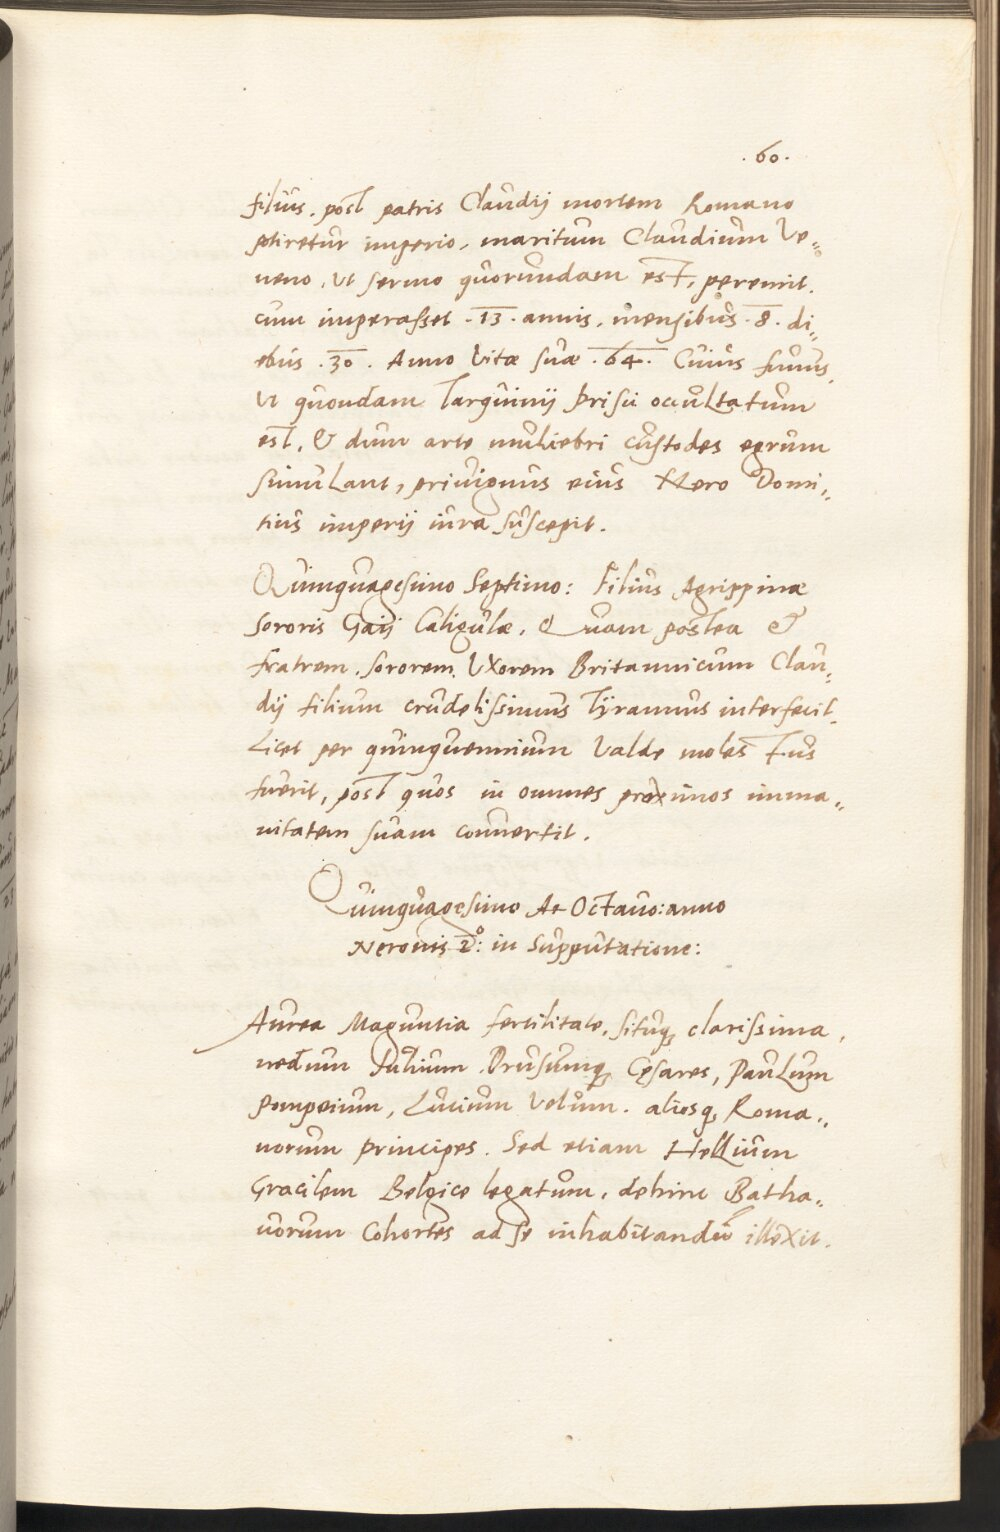 .60.
filius. post patris Claudij mortem Romano
potiretur imperio, maritum Claudium Ve„
neno, ut sermo quorundam est, peremit.
cum imperasset .13. annis, mensibus .8. di„
ebus .30. Anno Vitæ suæ .64. Cuius funus,
ut quondam Tarquinij Prisci occultatum
est, & dum arte muliebri custodes egrum
simulant, privignus eius Nero Domi„
tius imperij iura suscepit.
Quinquagesimo Septimo: Filius Agrippinæ
sororis Gaij Caligulæ. Quam postea &
fratrem, sororem, Uxorem Britannicum Clau„
dij filium crudelissimus Tyrannus interfecit.
Licet per quinquennium Valde molestus
fuerit, post quos in omnes proximos imma„
nitatem suam convertit.
Quinquagesimo Ac Octavo: anno
Neronis 2º: in Supputatione:
Aurea Maguntia fertilitate, situq, clarissima,
nedum Iulium Drusumq, Cęsares, Paulum
Pompeium, Lucium Vetum. aliosq, Roma„
norum principes. Sed etiam Hellium
Gracilem Belgice legatum, dehinc Batha„
uorum Cohortes ad se inhabitandū illexit.